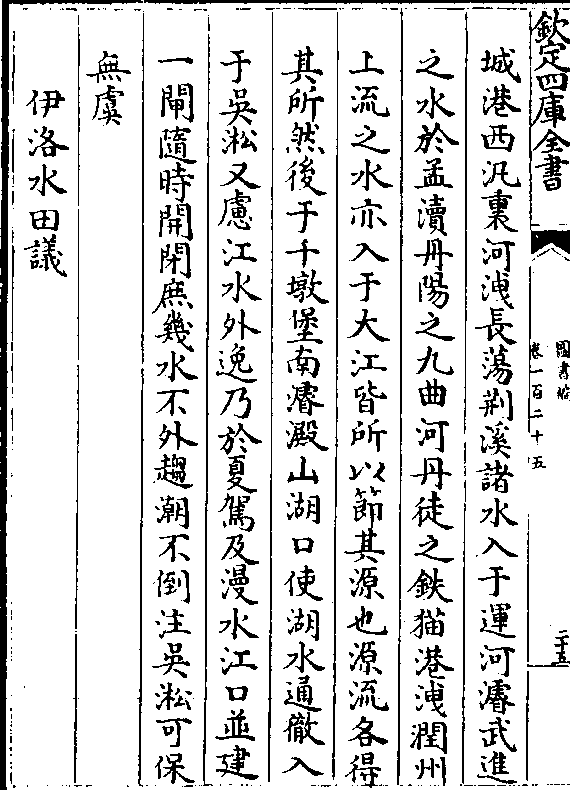 欽定四庫全書
圖書編
卷一百二十五
二十五
城港西汎裏河洩長蕩荆溪諸水入于運河濬武進
之水於孟瀆丹陽之九曲河丹徒之鉄猫港洩潤州
上流之水亦入于大江皆所以節其源也源流各得
其所然後于千墩堡南濬澱山湖口使湖水通徹入
于吳淞又慮江水外逸乃於夏駕及漫水江口並建
一閘隨時開閉庶幾水不外趨潮不倒注吳淞可保
無虞
伊洛水田議